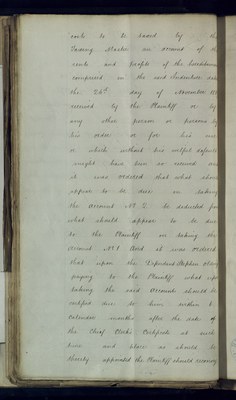 costs to be taxed by the
Taxing Master an account of the
rents and profits of the hereditaments
comprised in the said Indenture
the 26th day of November
received by the Plaintiff or by
any other person or persons by
his order or for his use
or which without his wilful default
might have been so received and
it was ordered that what should
appear to be due on taking
the account No. 2 be deducted from
what should appear to be due
to the Plaintiff on taking the
account No. 1 And it was ordered
that upon the Defendant Stephen
paying to the Plaintiff what upon
taking the said accounts should be
certified due to him within 6
Calendar months after the date of
the Chief Clerks Certificate at such
time and place as should be
thereby appointed the Plaintiff should reconvey